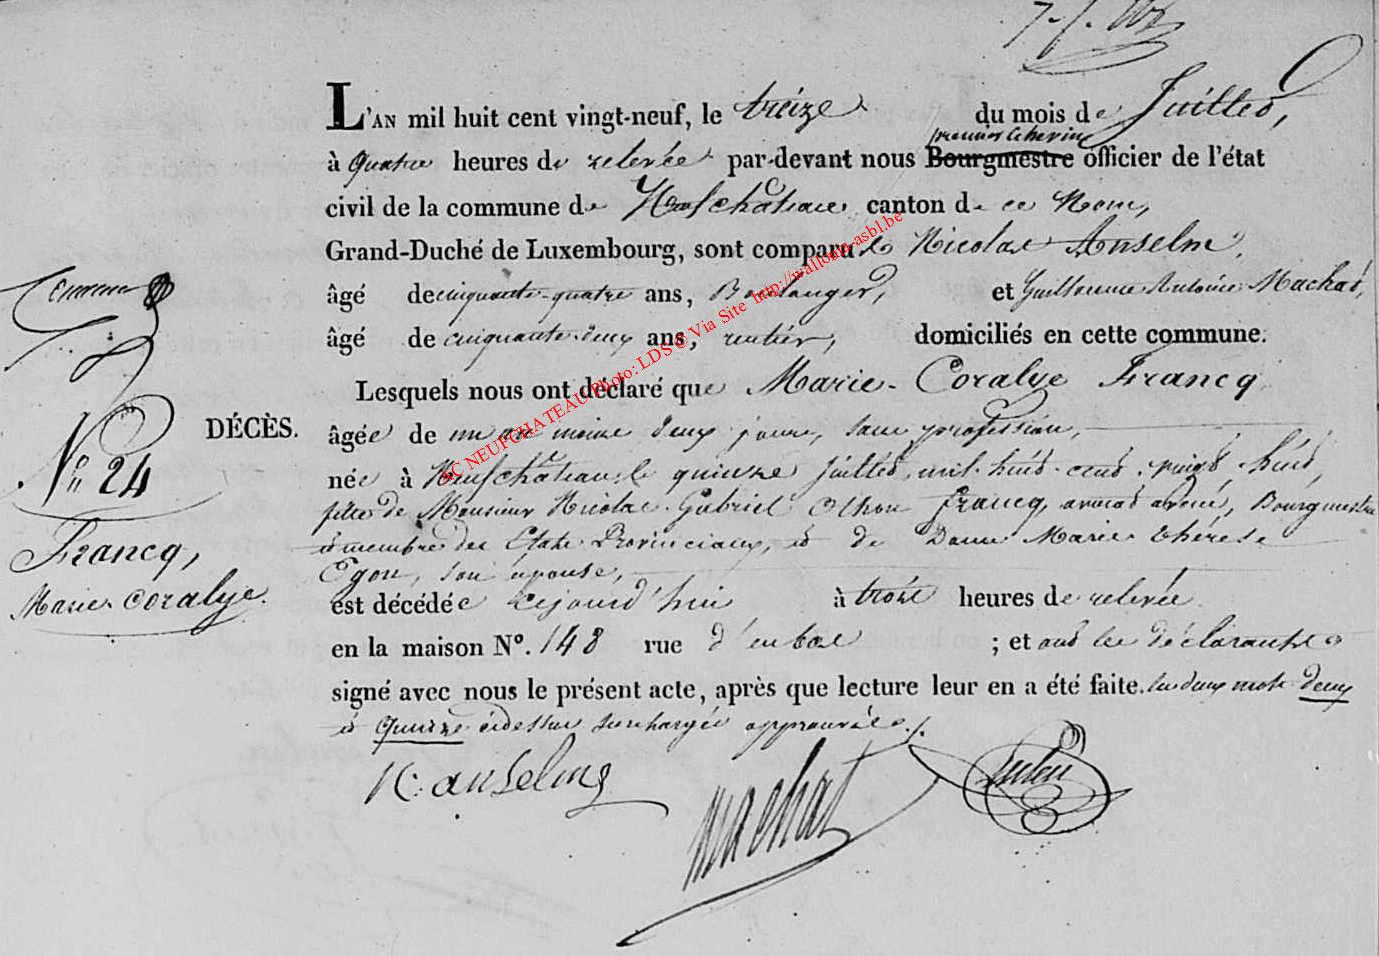 L'AN mil huit cent vingt-neuf, le treize du mois de Juillet,
premier Echevin
à quatre heures de relevée par-devant nous Bourgmestre officier de l'état
civil de la commune de Neufchâteau canton de ce Nom,
Grand-Duché de Luxembourg, sont comparu les Nicolas Anselm,
âgé de cinquante-quatre ans, Boulanger, et Guillaume Antoine Machat,
âgé de cinquante-deux ans, rentier, domiciliés en cette commune.
Lesquels nous ont déclaré que Marie-Coralye Francq
DÉCÈS.
âgée de un an moins deux jours, sans profession,
née à Neufchâteau le quinze Juillet mil huit cent vingt huit,
fille de Monsieur Nicolas Gabriel Francq, avocat avoué, Bourgmestre
et membre des Etats Provinciaux, et de Dame Marie Thérèse
son épouse,
est décédée cejourd'hui à trois heures de relevée
en la maison N°. 148 rue d'en bas ; et ont les déclarants
signé avec nous le présent acte, après que lecture leur en a été faite. les deux mots deux
et quinze cidessus surchargés approuvés./.
N. anselme
machat
Femme
N° 24
Francq,
Marie Coralye.
EC NEUFCHATEAU Photo: LDS © Via Site http://wallonia-asbl.be